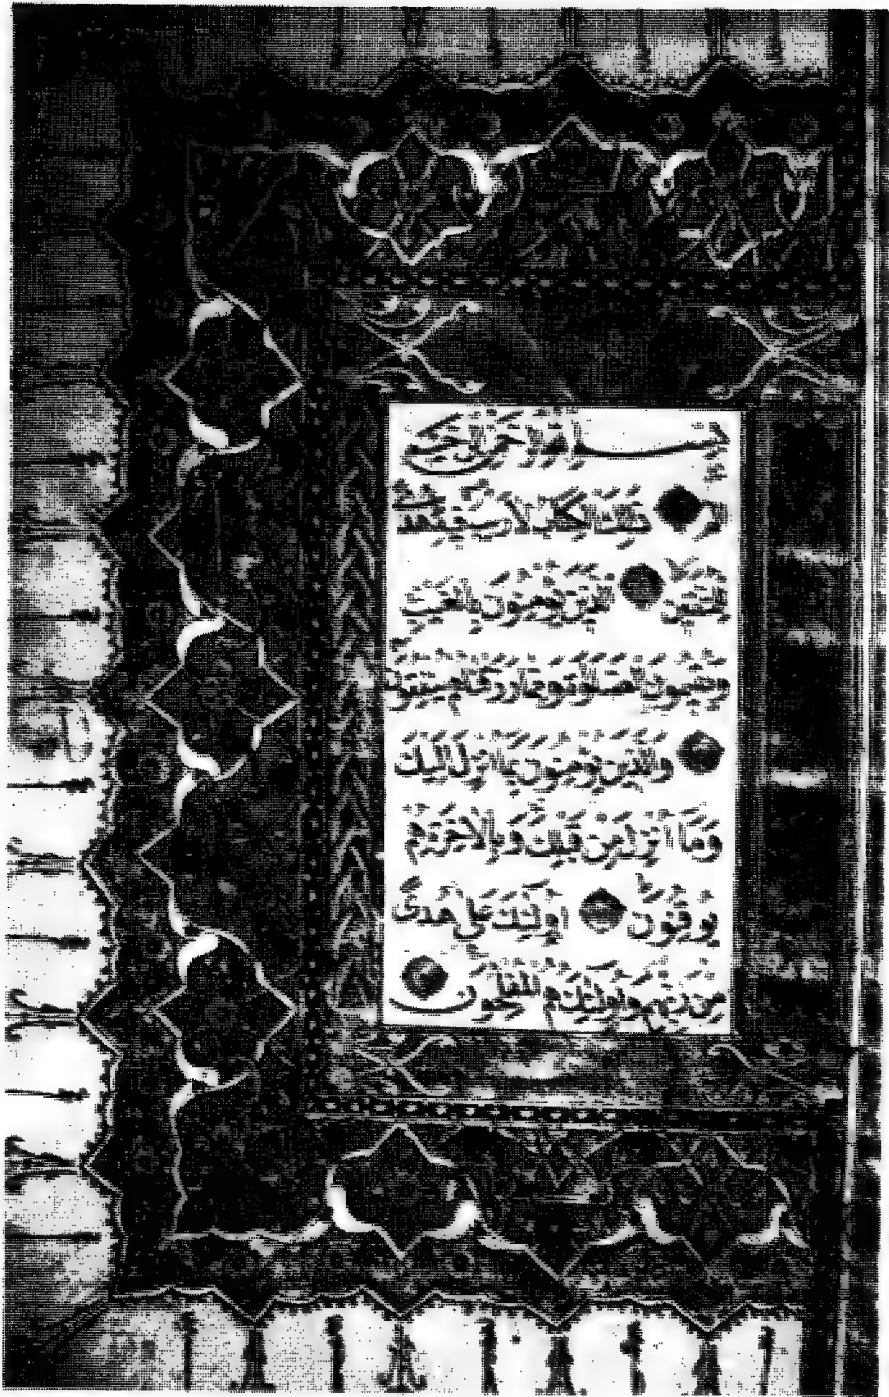 بِسْمِ اللَّهِ الرَّحْمَٰنِ الرَّحِيمِ
الم ذَٰلِكَ الْكِتَابُ لَا رَيْبَ فِيهِ هُدًى
لِلْمُتَّقِينَ الَّذِينَ يُؤْمِنُونَ بِالْغَيْبِ
وَيُقِيمُونَ الصَّلَوٰةَ وَمِمَّا رَزَقْنَاهُمْ يُنْفِقُونَ
وَالَّذِينَ يُؤْمِنُونَ بِمَا أُنْزِلَ إِلَيْكَ
وَمَا أُنْزِلَ مِنْ قَبْلِكَ وَبِالْآخِرَةِ هُمْ
يُوقِنُونَ أُولَٰئِكَ عَلَىٰ هُدًى
مِنْ رَبِّهِمْ وَأُولَٰئِكَ هُمُ الْمُفْلِحُونَ